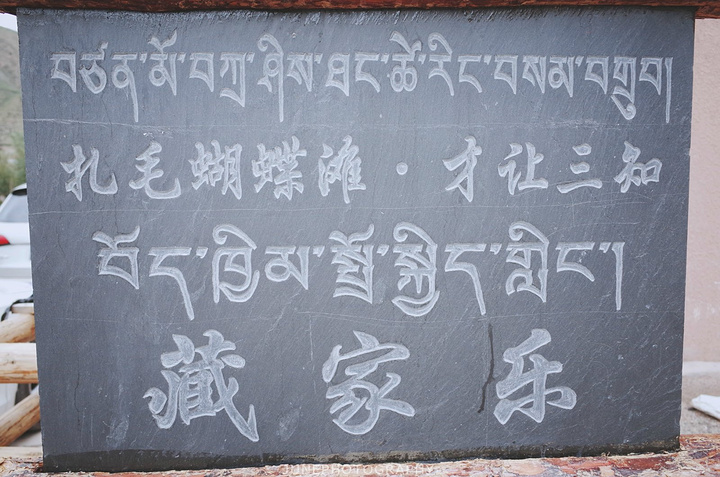 བཙན་མོ་བཀྲ་ཤིས་ཐང་ཚེ་རིང་བསམ་བགྲུབ།
扎毛蝴蝶滩·才让三知
བོད་ཁྱིམ་སྤྲོ་སྐྱིད་གླིང་།
藏家乐
JUNEPHOTOGRAPHY